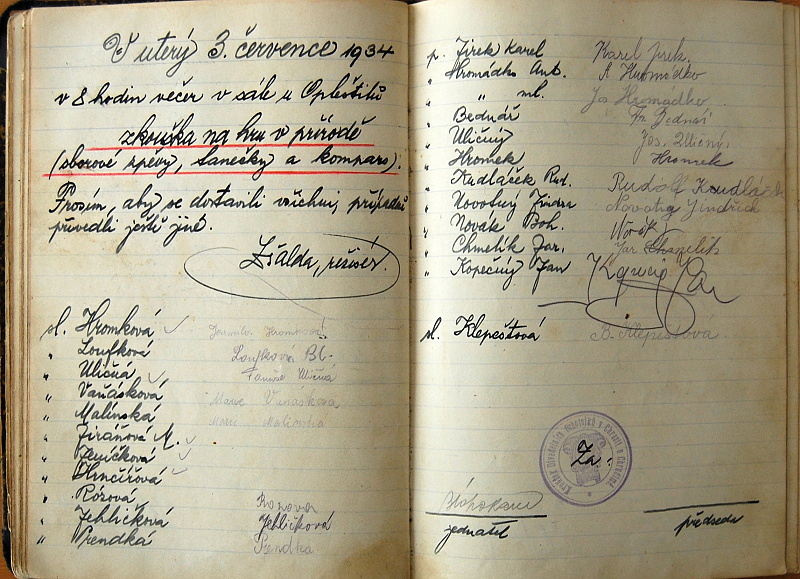 V úterý 3. července 1934
v 8 hodin večer v sále u Opleštilů
zkouška na hru v přírodě
(sborové zpěvy, tanečky a kompars).
Prosím, aby se dostavili všichni, případně
přivedli ještě jiné.
Žalda, režisér.
sl. Hromková
" Loufková Loufková Bl.
" Uličná Uličná
" Vaňásková Marie Vaňásková
" Malínská Marie Malinská
" Jiráňová A.
" Janíčková
" Ohnčířová
" Rózová Rozova
" Jehličková Jehličková
" Prendká Prendka
p. Jirek Karel Karel Jirek
" Hromádko Ant. A Hromádko
" " ml. Jos Hromádko
" Bednář Fr. Bednář
" Uličný Jos. Uličný.
" Hromek Hromek
" Kudláček Rud. Rudolf Kudláček
" Novotný Jindra Novotný Jindřich
" Novák Boh. Novák
" Chmelík Jar. Jar. Chmelík
" Kopečný Jan
sl. Klepeštová B. Klepeštová
Za:
jednatel předseda